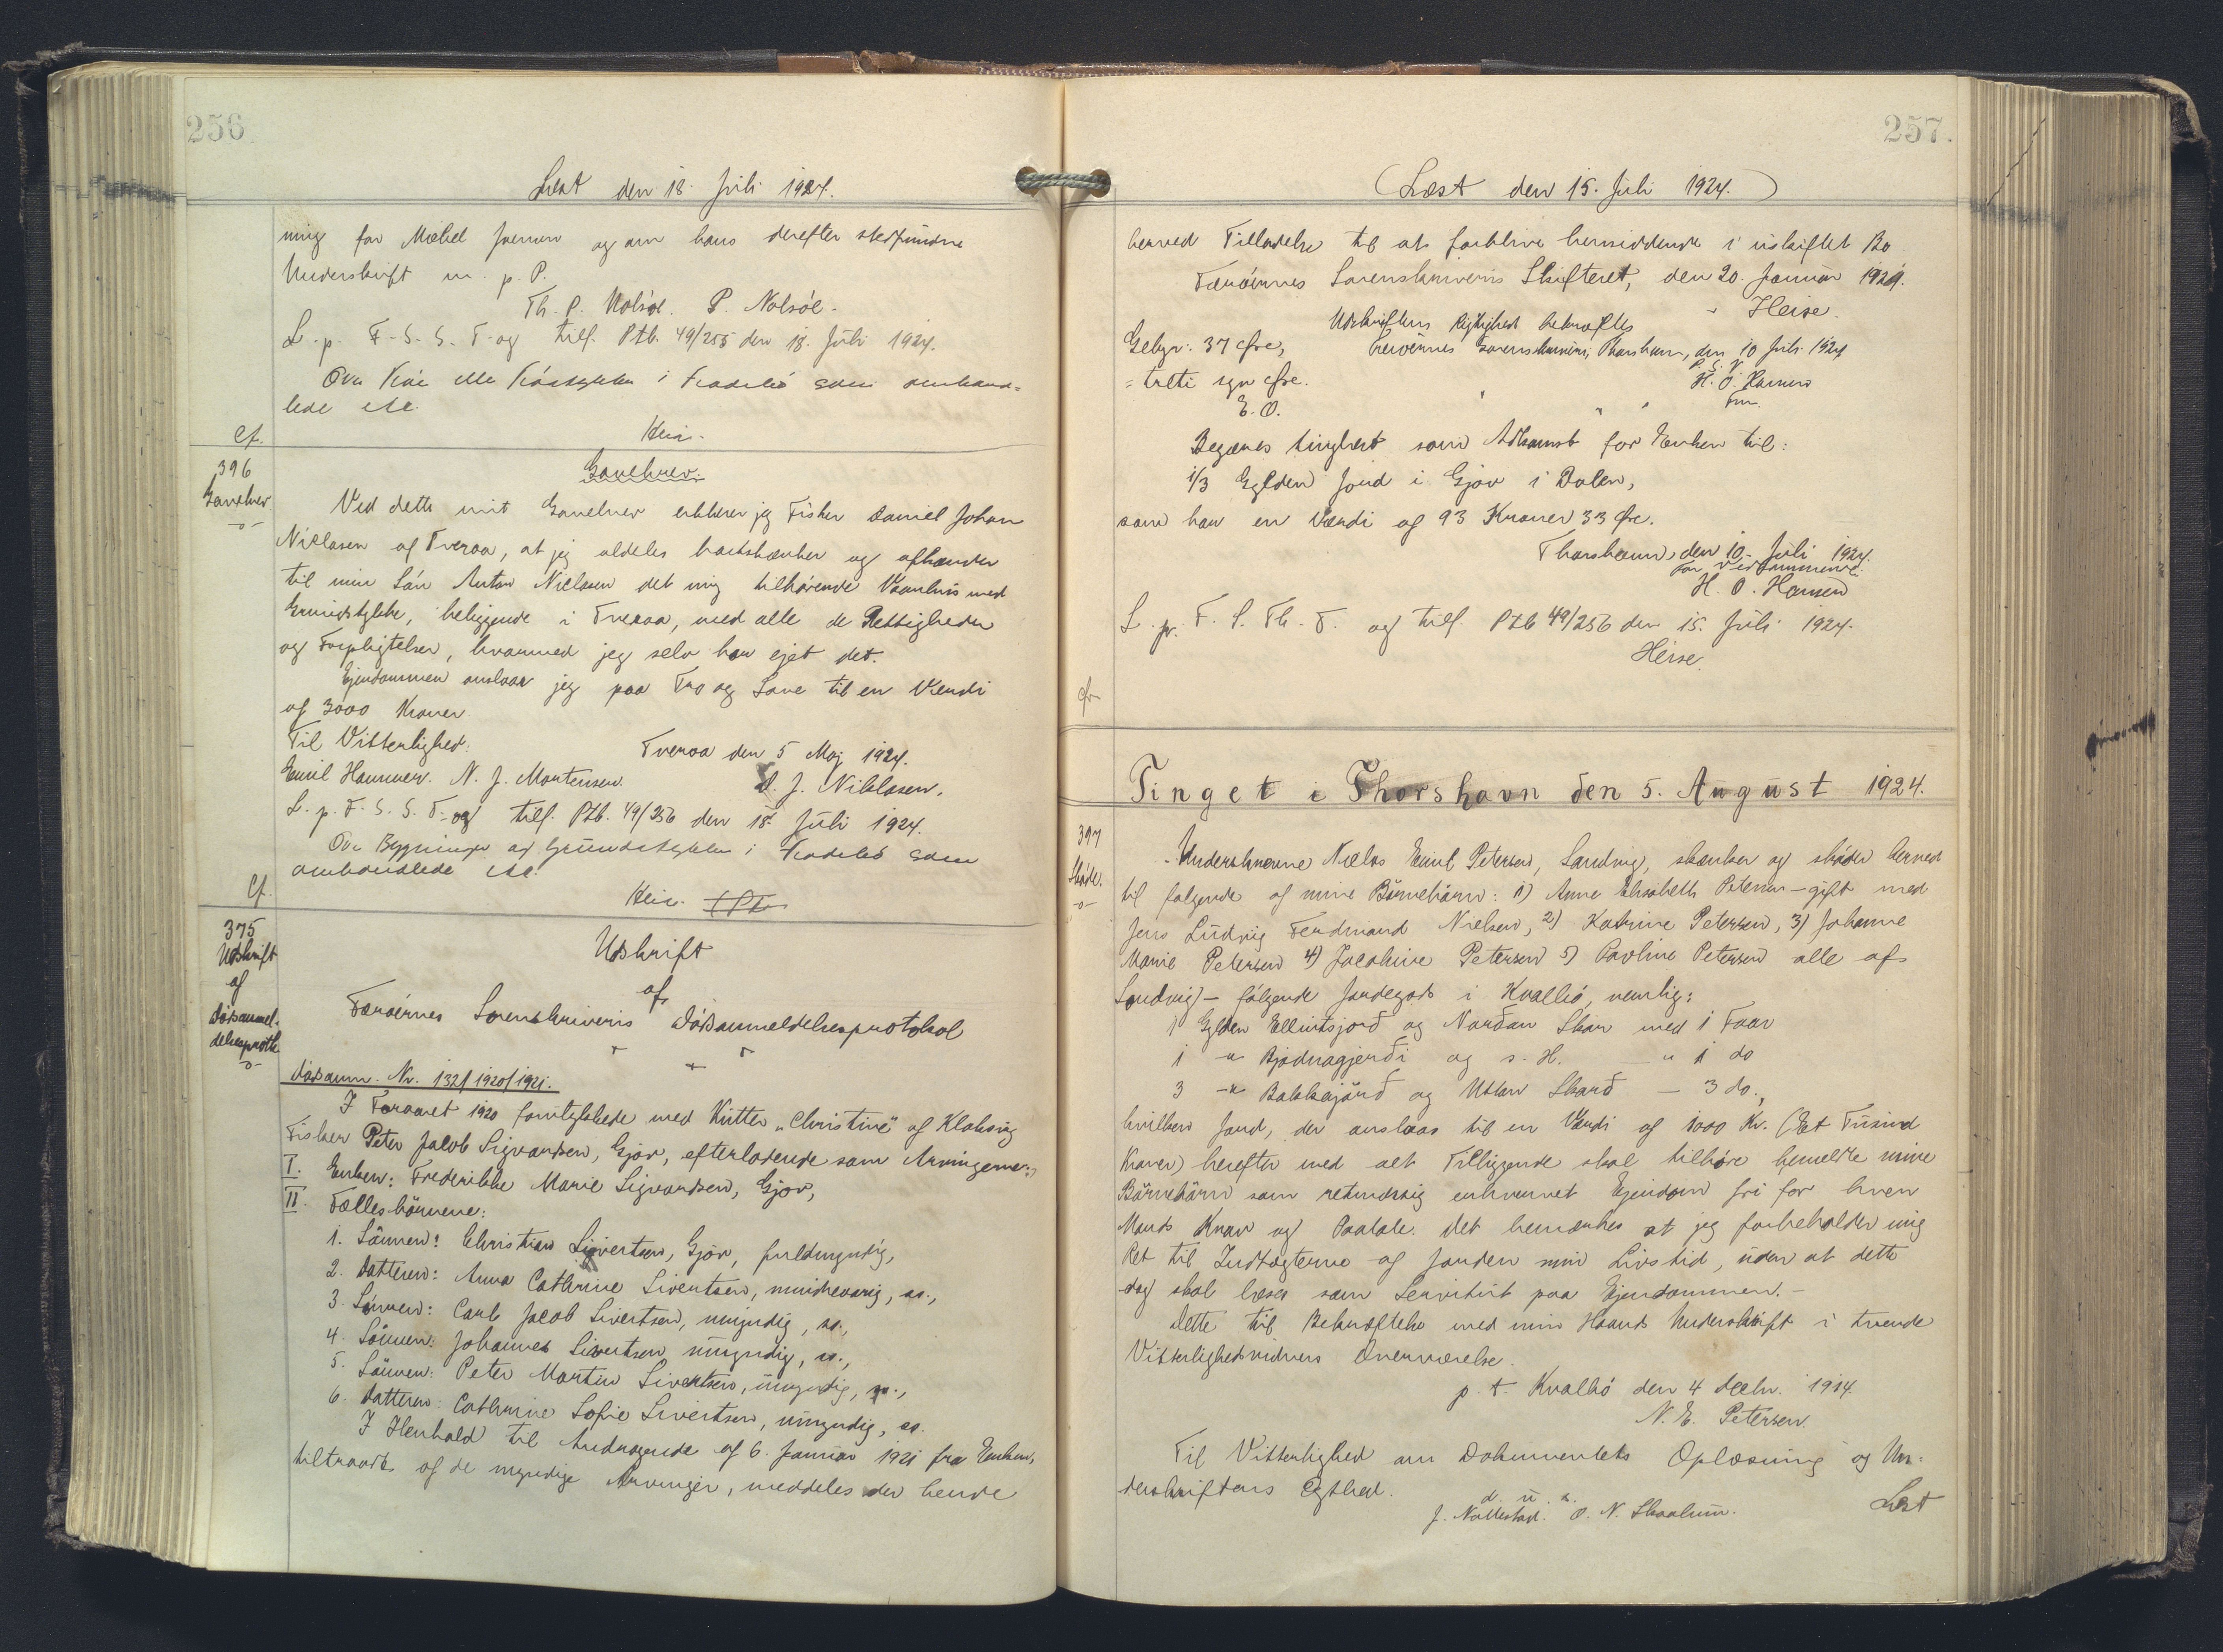 256
Læst den 18. Juli 1924.
ning for Mickel Joensen og om hans derefter stedfundne
Underskrift m. p. P.
Th. P. Nolsöe. P. Nolsöe.
L. p. F. S. S. T. og tilf. Ptb. 49/255 den 18. Juli 1924.
i som omhand=
lede
Cf.
Heise.
396
Gavebrev
Gavebrev.
Ved dette mit Gavebrev erklærer jeg Fisker Daniel Johan
Niclasen af Tveraa, at jeg aldeles bortskænker og afhænder
til min Sön Anton Niclasen det mig tilhørende Vaanhus med
Grundstykke, beliggende i Tveraa, med alle de Rettigheder
og Forpligtelser, hvormed jeg selv har ejet det.
Ejendommen anslaar jeg paa Tro og Love til en Værdi
af 3000 Kroner
Til Vitterlighed:
Tveraa den 5 Maj 1924.
Emil Hammer. N. J. Mortensen.
D. J. Niklasen.
L. p. F. S. S. T. og tilf. Ptb. 49/256 den 18. Juli 1924.
Bygninger og Grundstykke i som
omhandlede
Cf.
Heise.
375
Udskrift
af
dödsanmel-
delsesprotk
Udskrift
af
Færöernes Sorenskriveris Dödsanmeldelsesprotokol
Dödsanm. Nr. 132/1920/1921.
I Foraaret 1920 forulykkede med Kutter "Christine" af Klaksvig
Fisker Peter Jakob Sigvardsen, Gjov, efterladende som Arvingerne:
I. Enken: Frederikke Marie Sigvardsen, Gjov,
II. Fællesbörnene:
1. Sönnen: Christian Sivertsen, Gjov, fuldmyndig,
2. Datteren: Anna Cathrine Sivertsen, mindreaarig, ss.,
3. Sönnen: Carl Jacob Sivertsen, umyndig, ss.,
4. Sönnen: Johannes Sivertsen umyndig, ss.,
5. Sönnen: Peter Martin Sivertsen, umyndig, ss.,
6. Datteren: Cathrine Sofie Sivertsen, umyndig, ss.
I Henhold til Andragende af 6. Januar 1921 fra Enken,
tiltraadt af de myndige Arvinger, meddeles der hende
257.
(Læst den 15. Juli 1924.)
herved Tilladelse til at forblive hensiddende i uskiftet Bo
Færöernes Sorenskriveris Skifteret, den 20 Januar 1921.
Heise.
Udskriftens Rigtighed bekræftes
Gebyr: 37 Øre,
Færöernes Sorenskriveri, Thorshavn, den 10 Juli 1924
= treti syv Øre.
P. S. V.
H. O. Hansen
E. O.
Fm.
Begæres tinglæst som Adkomst for Enken til:
1/3 Gylden Jord i Gjov i Dalen,
som har en Værdi af 93 Kroner 33 Øre.
Thorshavn, den 10. Juli 1924.
For Vedkommende.
H. O. Hansen
L. p. F. S. Th. T. og tilf. Ptb 49/256 den 15. Juli 1924.
Heise.
Tinget i Thorshavn den 5. August 1924.
397
Skøde.
Underskrevne Niclas Emil Petersen, Sandvig, skænker og skøder herved
til følgende af mine Börnebörn: 1) Anne Elisabeth Petersen - gift med
Jens Ludvig Ferdinand Nielsen, 2) Katrine Petersen, 3) Johanne
Marie Petersen 4) Jacobine Petersen 5) Pavline Petersen alle af
Sandvig) - følgende Jordegods i Kvalbö, nemlig:
1 Gylden Ellintsjorð og Norðan Skor med 1 Faar
1 -"- Bjødnagjerði og s. H. -"- 1 do
3 -"- Bakkajörð og Uttan Skarð - 3 do.,
hvilken Jord, der anslaas til en Værdi af 1000 Kr. (Et Tusind
Kroner) herefter med alt Tilliggende skal tilhöre bemeldte mine
Börnebörn som retmæssig erhvervet Ejendom fri for hver
Mands Krav og Paatale. Det bemærkes at jeg forbeholder mig
Ret til Indtægterne af Jorden min Livstid, uden at dette
dog skal læses som Servitut paa Ejendommen. -
Dette til Bekræftelse med min Haands Underskrift i tvende
Vitterlighedsvidners Overværelse.
p. t. Kvalbö den 4 Decbr. 1914.
N. E. Petersen.
Til Vitterlighed om Dokumentets Oplæsning og Un=
derskriftens Ægthed.
d. u. s.
J. Nattestad. O. N. Skaalum.
Læst